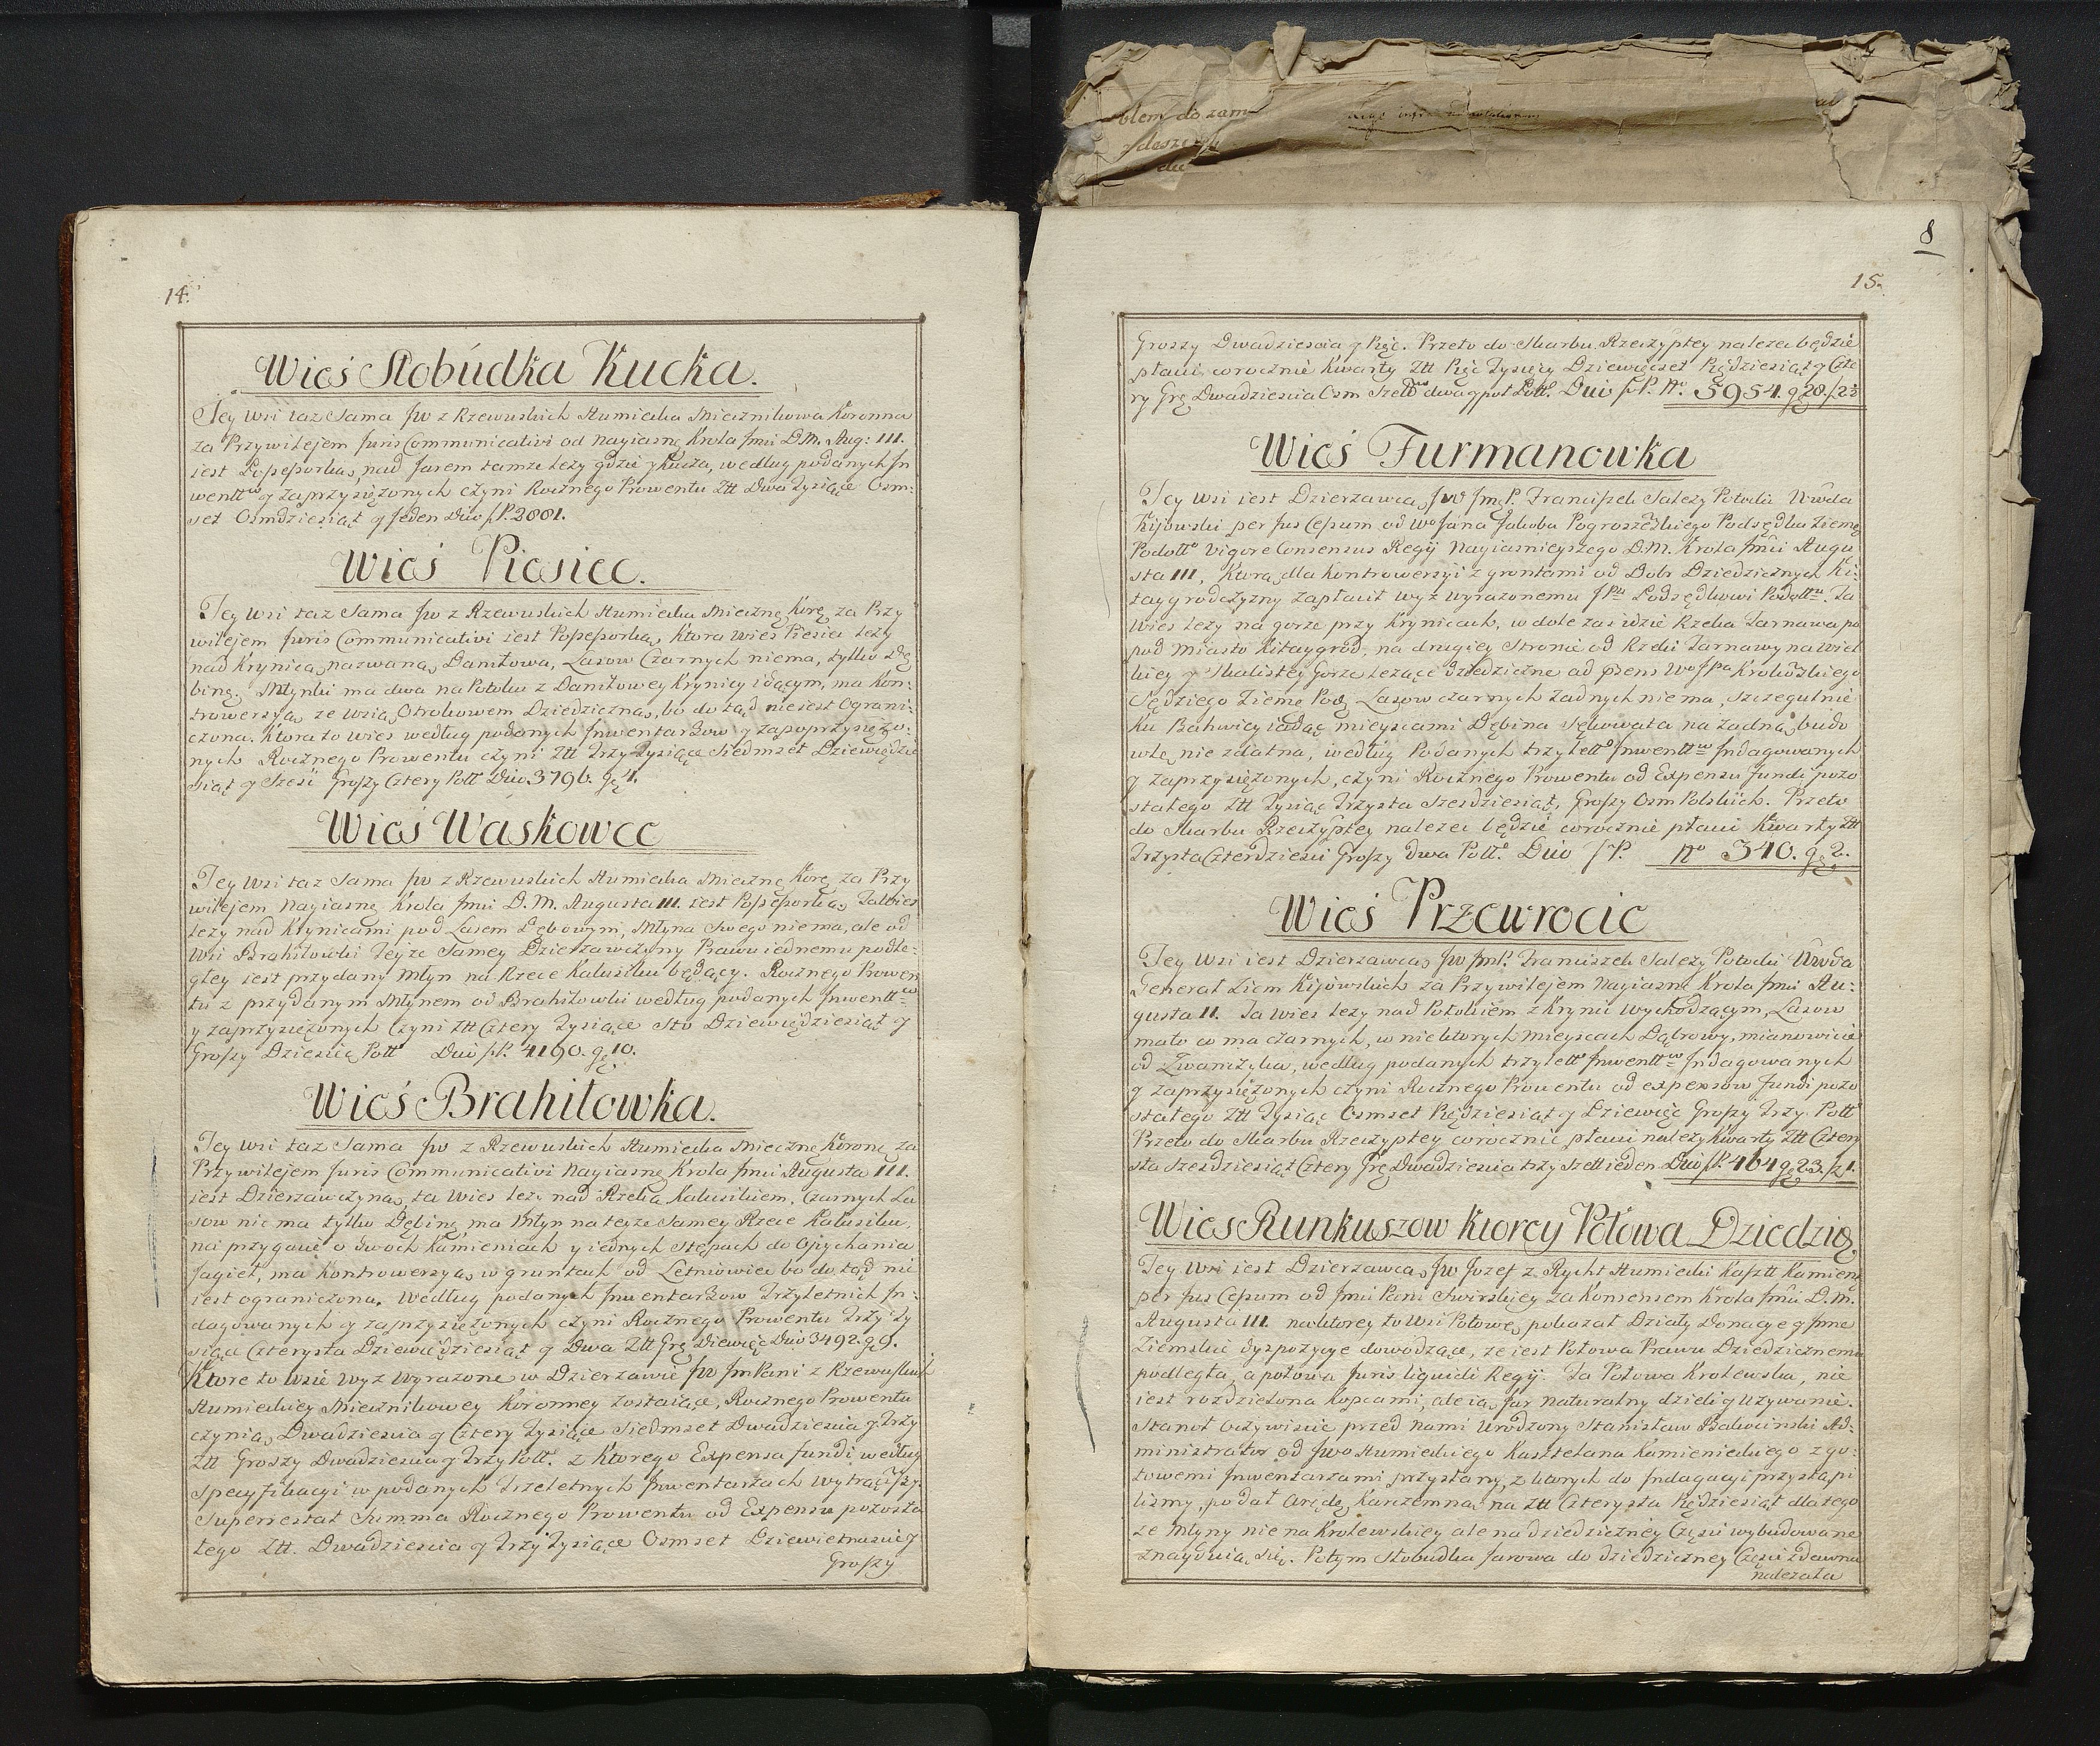 14.
Wieś Słobudka Kucka.
Tey wsi taz Sama JW z Rzewuskich Humiecka Miecznikowa Koronna
za Przywilejem Juris Communicativi od Nayiasnę Krola Jmci D.M. Aug: III.
iest Possessorką, nad Jarem tamze lezy gdzie y Kucza, według podanych In
wentt<sup>w</sup> y zaprzysięzonych czyni Rocznego Prowentu Ztt Dwa Tysiące Osm:
set Osmdziesiąt y Jeden Dico fP. 2881.
Wieś Piesiec.
Tey wsi taz Sama JW z Rzewuskich Humiecka Miecznę Korę za Przy
wilejem Juris Communicativi iest Possessorką, Ktora wies Piesiec lezy
nad Krynicą nazwaną Daniłowa, Lasow Czarnych niema, tylko Dę
binę. Młynki ma dwa na Potoku z Daniłowey Krynicy idącym, ma Kon:
trowersyą ze wsią Otrokowem Dziedziczną, bo do tąd nieiest Ograni:
czona. Ktora to wies według podanych Inwentarzow y zapoprzysięzo:
nych Rocznego Prowentu czyni Ztt Trzy Tysiące Siedmset Dziewiędzie
siąt y Szesc Groszy Cztery Poll Dico 3796. gę 4.
Wieś Waskowce
Tey wsi taz Sama JW z Rzewuskich Humiecka Miecznę Korę za Przy
wilejem Nayiasnę Krola Jmci D. M. Augusta III. iest Possessorką, Ta wies
lezy nad Krynicami pod Lasem Dębowym, Młyna Swego niema, ale od
Wsi Brahiłowki Teyze Samey Dzierzawczyny Prawu iednemu podle:
głey iest przydany Młyn na Rzece Kalusiku będący. Rocznego Prowen
tu z przydanym Młynem od Brahiłowki według podanych Inwentt<sup>w</sup>
y zaprzysięzonych Czyni Ztt Cztery Tysiące Sto Dziewiędziesiąt y
Groszy Dziesięc Poll Dico fP. 4190. gę 10.
Wieś Brahiłowka.
Tey wsi taz Sama JW z Rzewuskich Humiecka Mieczne Koronę za
Przywilejem Juris Communicativi Nayiasnę Krola Jmci Augusta III.
iest Dzierzawczyną, ta Wies lezy nad Rzeką Kalusikiem, Czarnych La
sow nie ma tylko Dębinę ma Młyn na teyze Samey Rzece Kalusiku,
na przygacie o dwoch Kamieniach y iednych Stępach do Opychania
Jagieł, ma Kontrowersyą w gruntach od Letniowiec bo do tąd nie
iest ograniczona. Według podanych Inwentarzow Trzyletnich In:
dagowanych y zaprzysięzonych czyni Rocznego Prowentu Trzy Ty
siące Czterysta Dziewiędziesiąt y Dwa Ztt Grę Diewięc Dico 3492. gę 9.
Ktore to wsie wyz wyrazone w Dzierzawie JW JmPani z Rzewuskich
Humieckiey Miecznikowey Koronney zostaiące, Rocznego Prowentu
czynią Dwadziescia y Cztery Tysiące Siedmset Dwadziescia y Trzy
Ztt Groszy Dwadziescia y Trzy Poll. z Ktorego Expensa fundi według
Specyfikacyi w podanych Trzeletnych Inwentarzach wytrąciwszy.
Superrestat Summa Rocznego Prowentu od Expensu pozosta
łego Ztt. Dwadziescia y Trzy Tysiące Osmset Dziewietnascie y
Groszy
8
15.
Groszy Dwadziescia y Pięc. Przeto do Skarbu Rzeczyptey nalezec będzie
płacic corocznie Kwarty Ztt Pięc Tysięcy Dziewięcset Pięcdziesiąt y Czte
ry Grę Dwadziescia Osm Szell<sup>w</sup> dwa y puł Poll. Dico fP. N<sup>o</sup> 5954. g 28/2½
Wieś Furmanowka
Tey wsi iest Dzierzawcą JW JmęP. Franciszek Salezy Potocki Wwda
Kijowski per Jus Cessum od Wo Jana Jakoba Pogroszewskiego Podsędka Ziemę
Podoll<sup>o</sup> vigore Consensus Regij Nayiasnieyszego D.M. Krola Jmci Augu
sta III, Ktorą dla Kontrowersyi z gruntami od Dobr Dziedzicznych Ki:
taygrodczyzny zapłacił wyz wyrazonemu JP<sup>u</sup> Podsędkowi Podoll<sup>u</sup>. Ta
Wies lezy na gorze przy Krynicach, w dole zas idzie Rzeka Tarnawa po
pod Miasto Kitaygrod, na drugiey Stronie od Rzeki Tarnawy na Wiel
kiey y Skalistey Gorze lezące dziedziczne ad praesens Wo JPa Krokowskiego
Sędziego Ziemę Podę Lasow czarnych zadnych niema, szczegulnie
Ku Bakwicy iadąc mieyscami Dębina Sękowata na zadną budo
wlę nie zdatna, według Podanych trzylett<sup>o</sup> Inwentt<sup>w</sup> Indagowanych
y zaprzysięzonych, czyni Rocznego Prowentu od Expensu fundi pozo
stałego Ztt Tysiąc Trzysta Szesdziesiąt, Groszy Osm Polskich. Przeto
do Skarbu Rzeczyptey nalezec będzie corocznie płacic Kwarty Ztt
Trzysta Czterdziesci Groszy dwa Poll<sup>o</sup>. Dico fP. N<sup>o</sup> 340. gę 2.
Wieś Przewrocie
Tey wsi iest Dzierzawcą JW JmP. Franciszek Salezy Potocki Wwda
Generał Ziem Kijowskich za Przywilejem Nayiasnę Krola Jmci Au:
gusta II. Ta wies lezy nad Potokiem z Krynic wychodzącym, Lasow
mało co ma czarnych, w niektorych Mieyscach Dąbrowy, mianowicie
od Zwanczyka, według podanych trzylett Inwentt<sup>w</sup> Indagowanych
y zaprzysięzonych czyni Rocznego Prowentu od expensow Fundi pozo
stałego Ztt Tysiąc Osmset Pięcdziesiąt y Dziewięc Groszy Trzy Poll
Przeto do Skarbu Rzeczyptey corocznie płacic nalezy Kwarty Ztt Cztery
sta Szesdziesiąt Cztery Grę Dwadziescia trzy Szell ieden Dico fP. 464 gę 23./z 1.
Wieś Runkuszow Ktorey Połowa Dziedzię.
Tey Wsi iest Dzierzawcą JW Jozef z Rycht Humiecki Kasztt Kamienę
per Jus Cessum od Jmci Pani Swirskiey za Konsensem Krola Jmci D.M.
Augusta III. na ktorey to Wsi Połowę pokazał Działy Donacye y Jnne
Ziemskie dyspozycye dowodzące, ze iest Połowa Prawu Dziedzicznemu
podległa, a połowa Juris liquidi Regij. Ta Połowa Krolewska, nie
iest rozdzielona kopcami, ale ią Jar naturalny dzieli y Uzywanie.
Stanoł oczywiscie przed nami Urodzony Stanisław Bakocinski Ad:
ministrator od JWo Humieckiego Kasztelana Kamienieckiego z go:
towemi Inwentarzami przysłany, z ktorych do Indagacyi przystąpi
lismy, podał Arędę Karczemną na Ztt Czterysta Pięcdziesiąt dla tego
ze Młyny nie na Krolewskiey ale na dziedziczney Częsci wybudowane
znayduią się. Potym Słobudka Jarowa do dziedziczney Częsci zdawna
nalezała